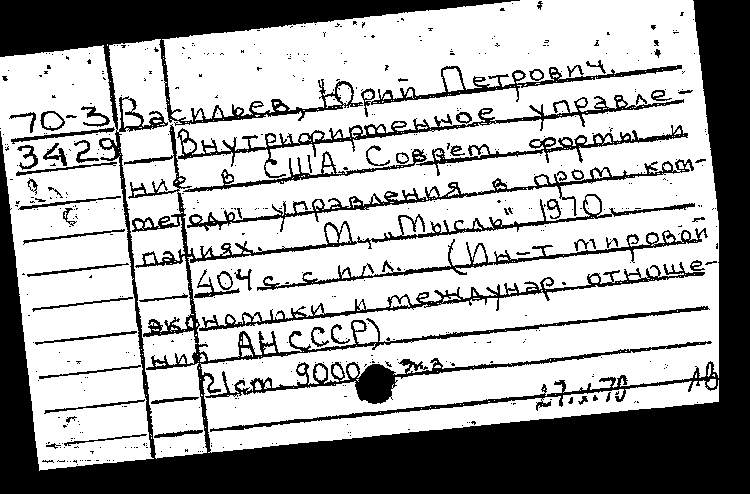 70-3 Васильев, Юрий Петрович.
3429 Внутрифирменное управле-
ние в США. Соврем. формы и
методы управления в пром. ком-
паниях. М., "Мысль", 1970.
404 с. с илл. (Ин-т мировой
экономики и междунар. отноше-
ний АН СССР).
21 cm. 9000 экз.
27.X.70 АВ